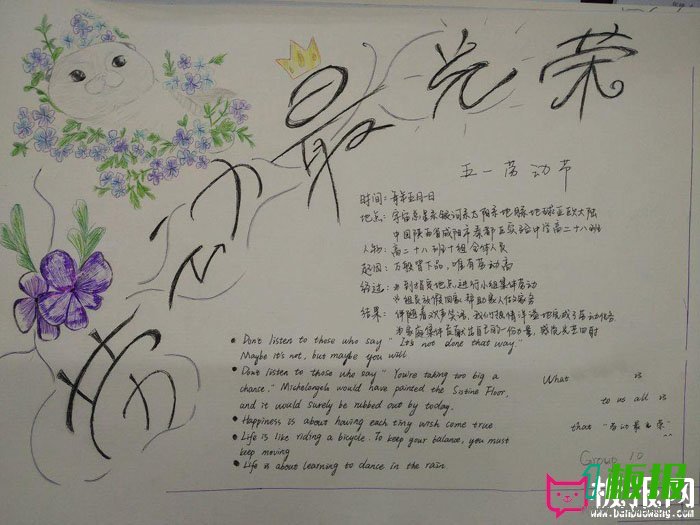 劳动最光荣
五一劳动节
时间：每年五月一日
地点：宇宙总星系银河系太阳系地球亚欧大陆
中国陕西省咸阳市秦都区实验中学高二十八班
人物：高二十八班十组全体人员
起因：万般皆下品，唯有劳动高
经过：
结果：伴随着欢声笑语，我们
• Don't listen to those who say " It's not done that way."
Maybe it's not, but maybe you will
• Don't listen to those who say " You're taking too big a
chance." Michelangelo would have painted the Sistine Floor,
and it would surely be rubbed out by today.
• Happiness is about having each tiny wish come true
• Life is like riding a bicycle. To keep your balance, you must
keep moving
• Life is about learning to dance in the rain
What is
to us all is
that "劳动最光荣"
Group 10
板报网
www.banbaowang.com